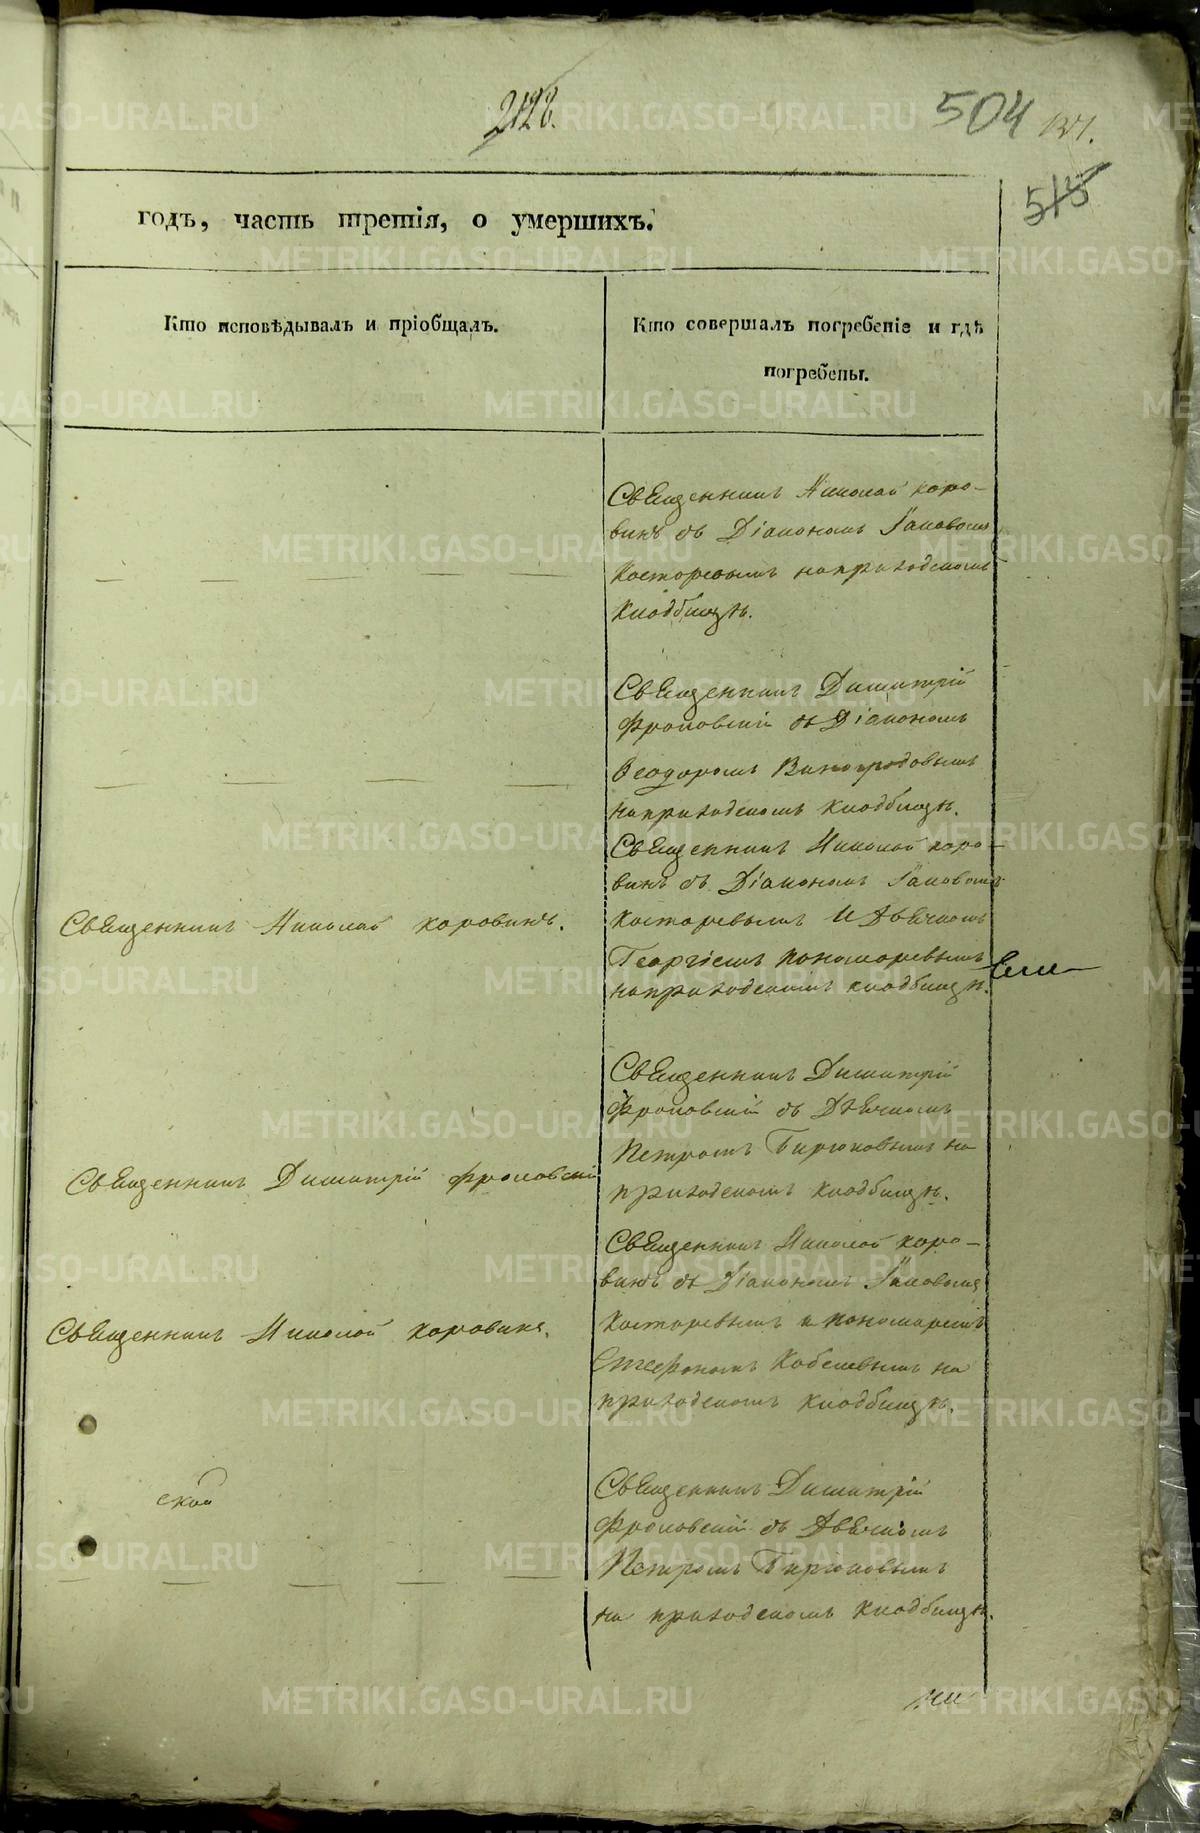 504
515
годъ, часть третія, о умершихъ.
Кто исповѣдывалъ и пріобщалъ.
Кто совершалъ погребеніе и гдѣ
погребены.
Священникъ Николай Коро-
винъ съ Діакономъ Іаковомъ
Косторевымъ на приходскомъ
кладбищѣ.
Священникъ Димитрій
Фроловскій съ Діакономъ
Ѳеодоромъ Виноградовымъ
на приходскомъ кладбищѣ.
Священникъ Николай Коровинъ.
Священникъ Николай Коро-
винъ съ Діакономъ Іаковомъ
Косторевымъ и Дьячкомъ
Георгіемъ Пономаревымъ
на приходскомъ кладбищѣ.
Священникъ Димитрій Фроловскій
Священникъ Димитрій
Фроловскій съ Дьячкомъ
Петромъ Бирюковымъ на
приходскомъ кладбищѣ.
Священникъ Николай Коровинъ.
Священникъ Николай Коро-
винъ съ Діакономъ Іаковомъ
Косторевымъ и пономаремъ
Стефаномъ Кобелевымъ на
приходскомъ кладбищѣ.
ской
Священникъ Димитрій
Фроловскій съ Дьячкомъ
Петромъ Бирюковымъ
на приходскомъ кладбищѣ.
METRIKI.GASO-URAL.RU